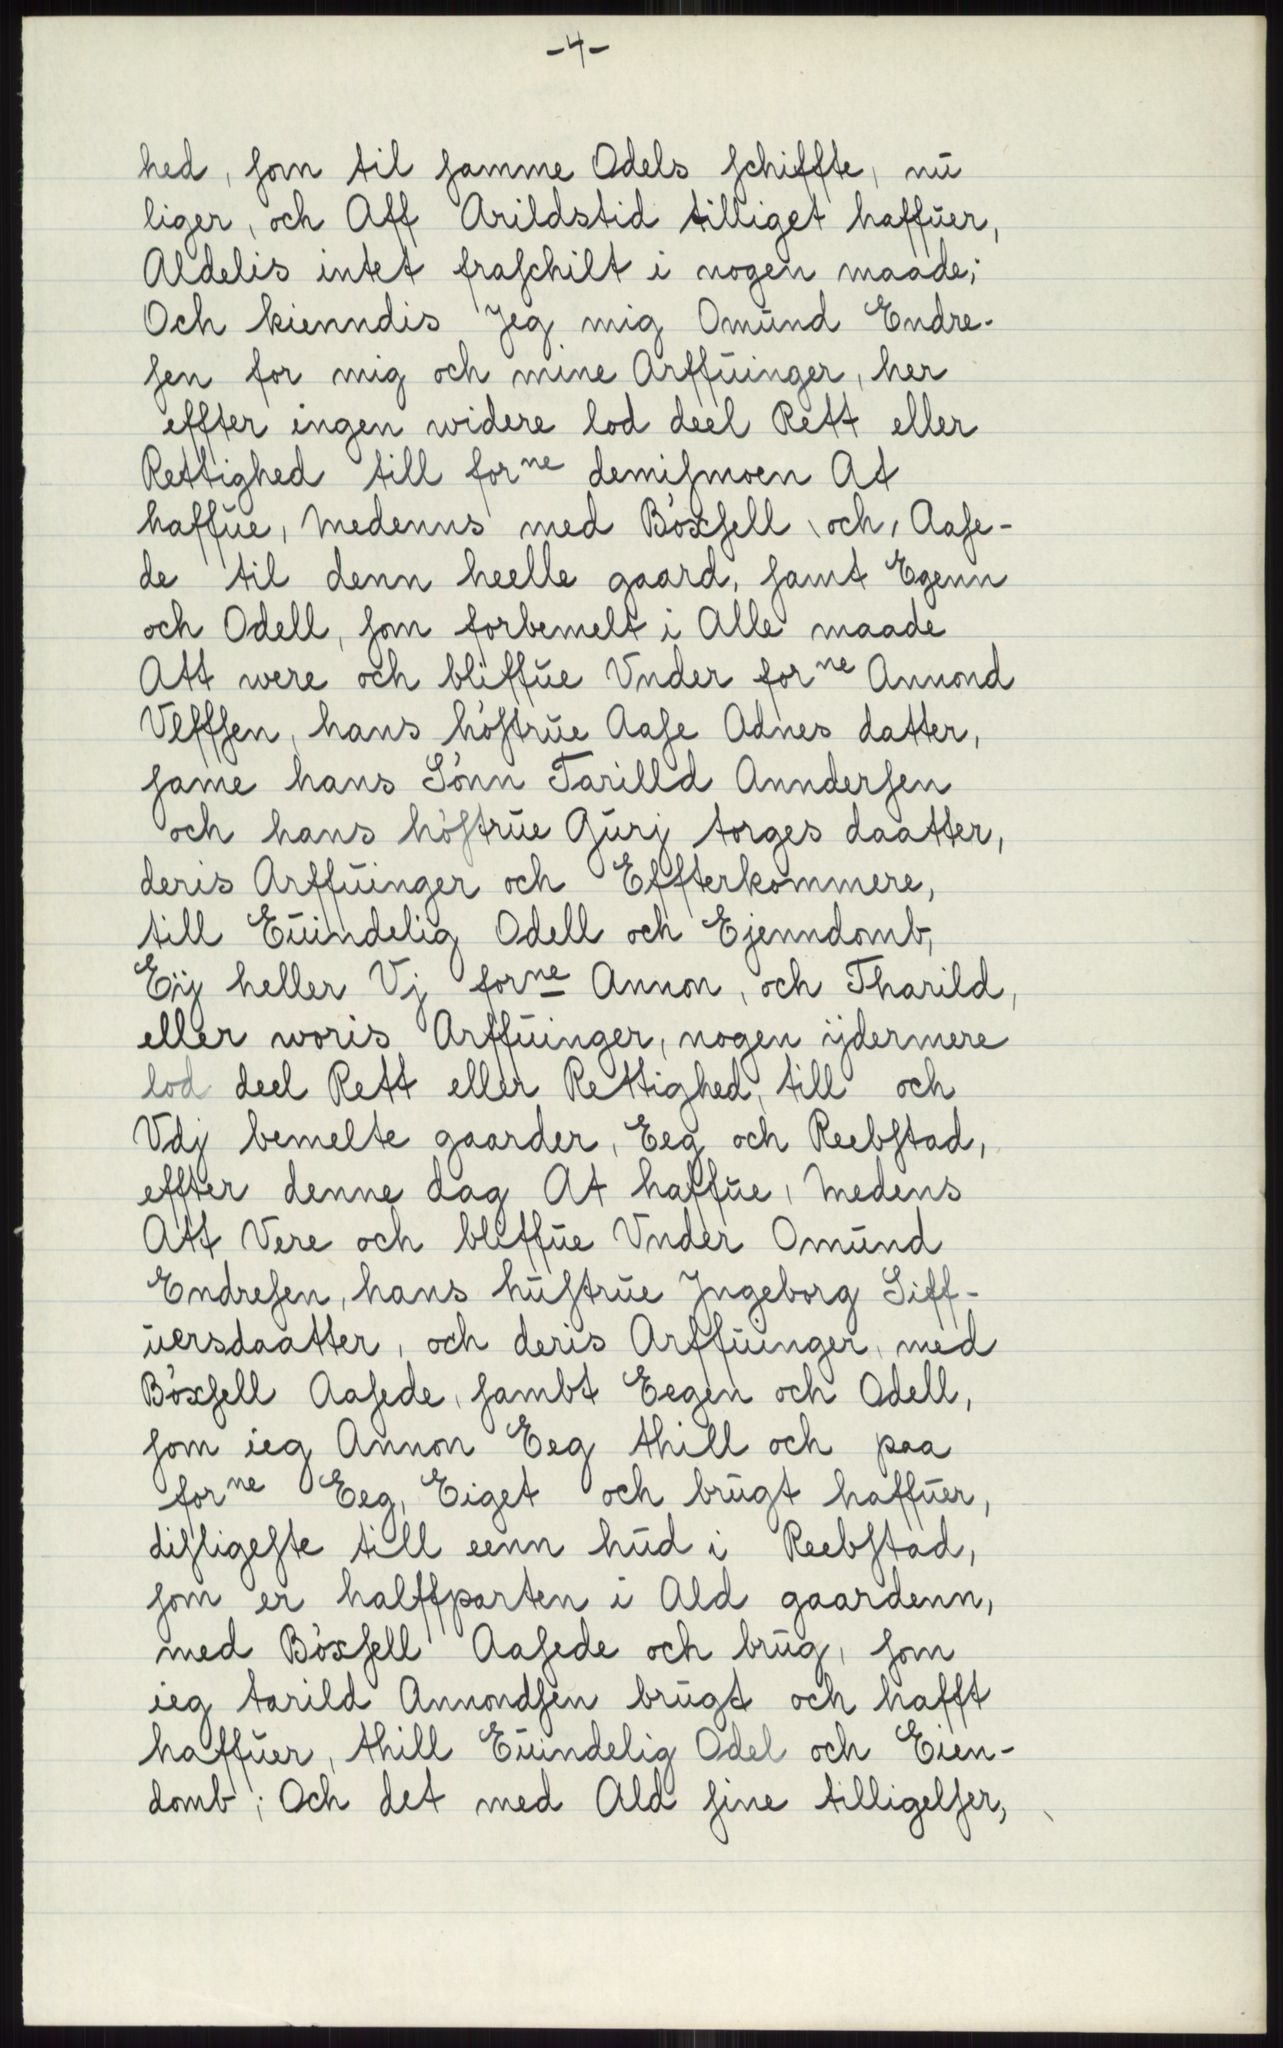 -4-
hed, som til samme Odels schiffte, nū
liger, och Aff Arildstid tilliget haffūer,
Aldelis intet fraschilt i nogen maade;
Och kienndis Jeg mig Omūnd Endre-
sen for mig och mine Arffūinger, her
effter ingen widere lod deel Rett eller
Rettighed till forne demismoen At
haffūe, Medenns med Bóxsell och, Aase-
de til denn heelle gaard, samt Egenn
och Odell, som forbemelt i Alle maade
Att were och bliffūe Vnder forne Annond
Vlffsen, hans hóstrūe Aase Adnes datter,
same hans Sónn Tarilld Anndersen
och hans hóstrūe Gūrj torges daatter,
deris Arffūinger och Effterkommere,
till Eūindelig Odell och Ejenndomb,
Eÿ heller Vj forne Annon, och Tharild,
eller woris Arffūinger, nogen ÿdermere
lod deel Rett eller Rettighed, till och
Vdj bemelte gaarder, Eeg och Reebstad,
effter denne dag At haffūe, Medens
Att Vere och bliffūe Vnder Omūnd
Endresen, hans hūstrūe Jngeborg Siff-
ūersdaatter, och deris Arffūinger, med
Bóxsell Aasede, sambt Eegen och Odell,
som ieg Annon Eeg thill och paa
forne Eeg, Eiget och brūgt haffūer,
disligeste till eenn hūd i Reebstad,
som er halffparten i Ald gaardenn,
med Bóxsell Aasede och brūg, som
ieg tarild Annondsen brūgt och hafft
haffūer, thill Eūindelig Odel och Eien-
domb; Och det med Ald sine tilligelser,